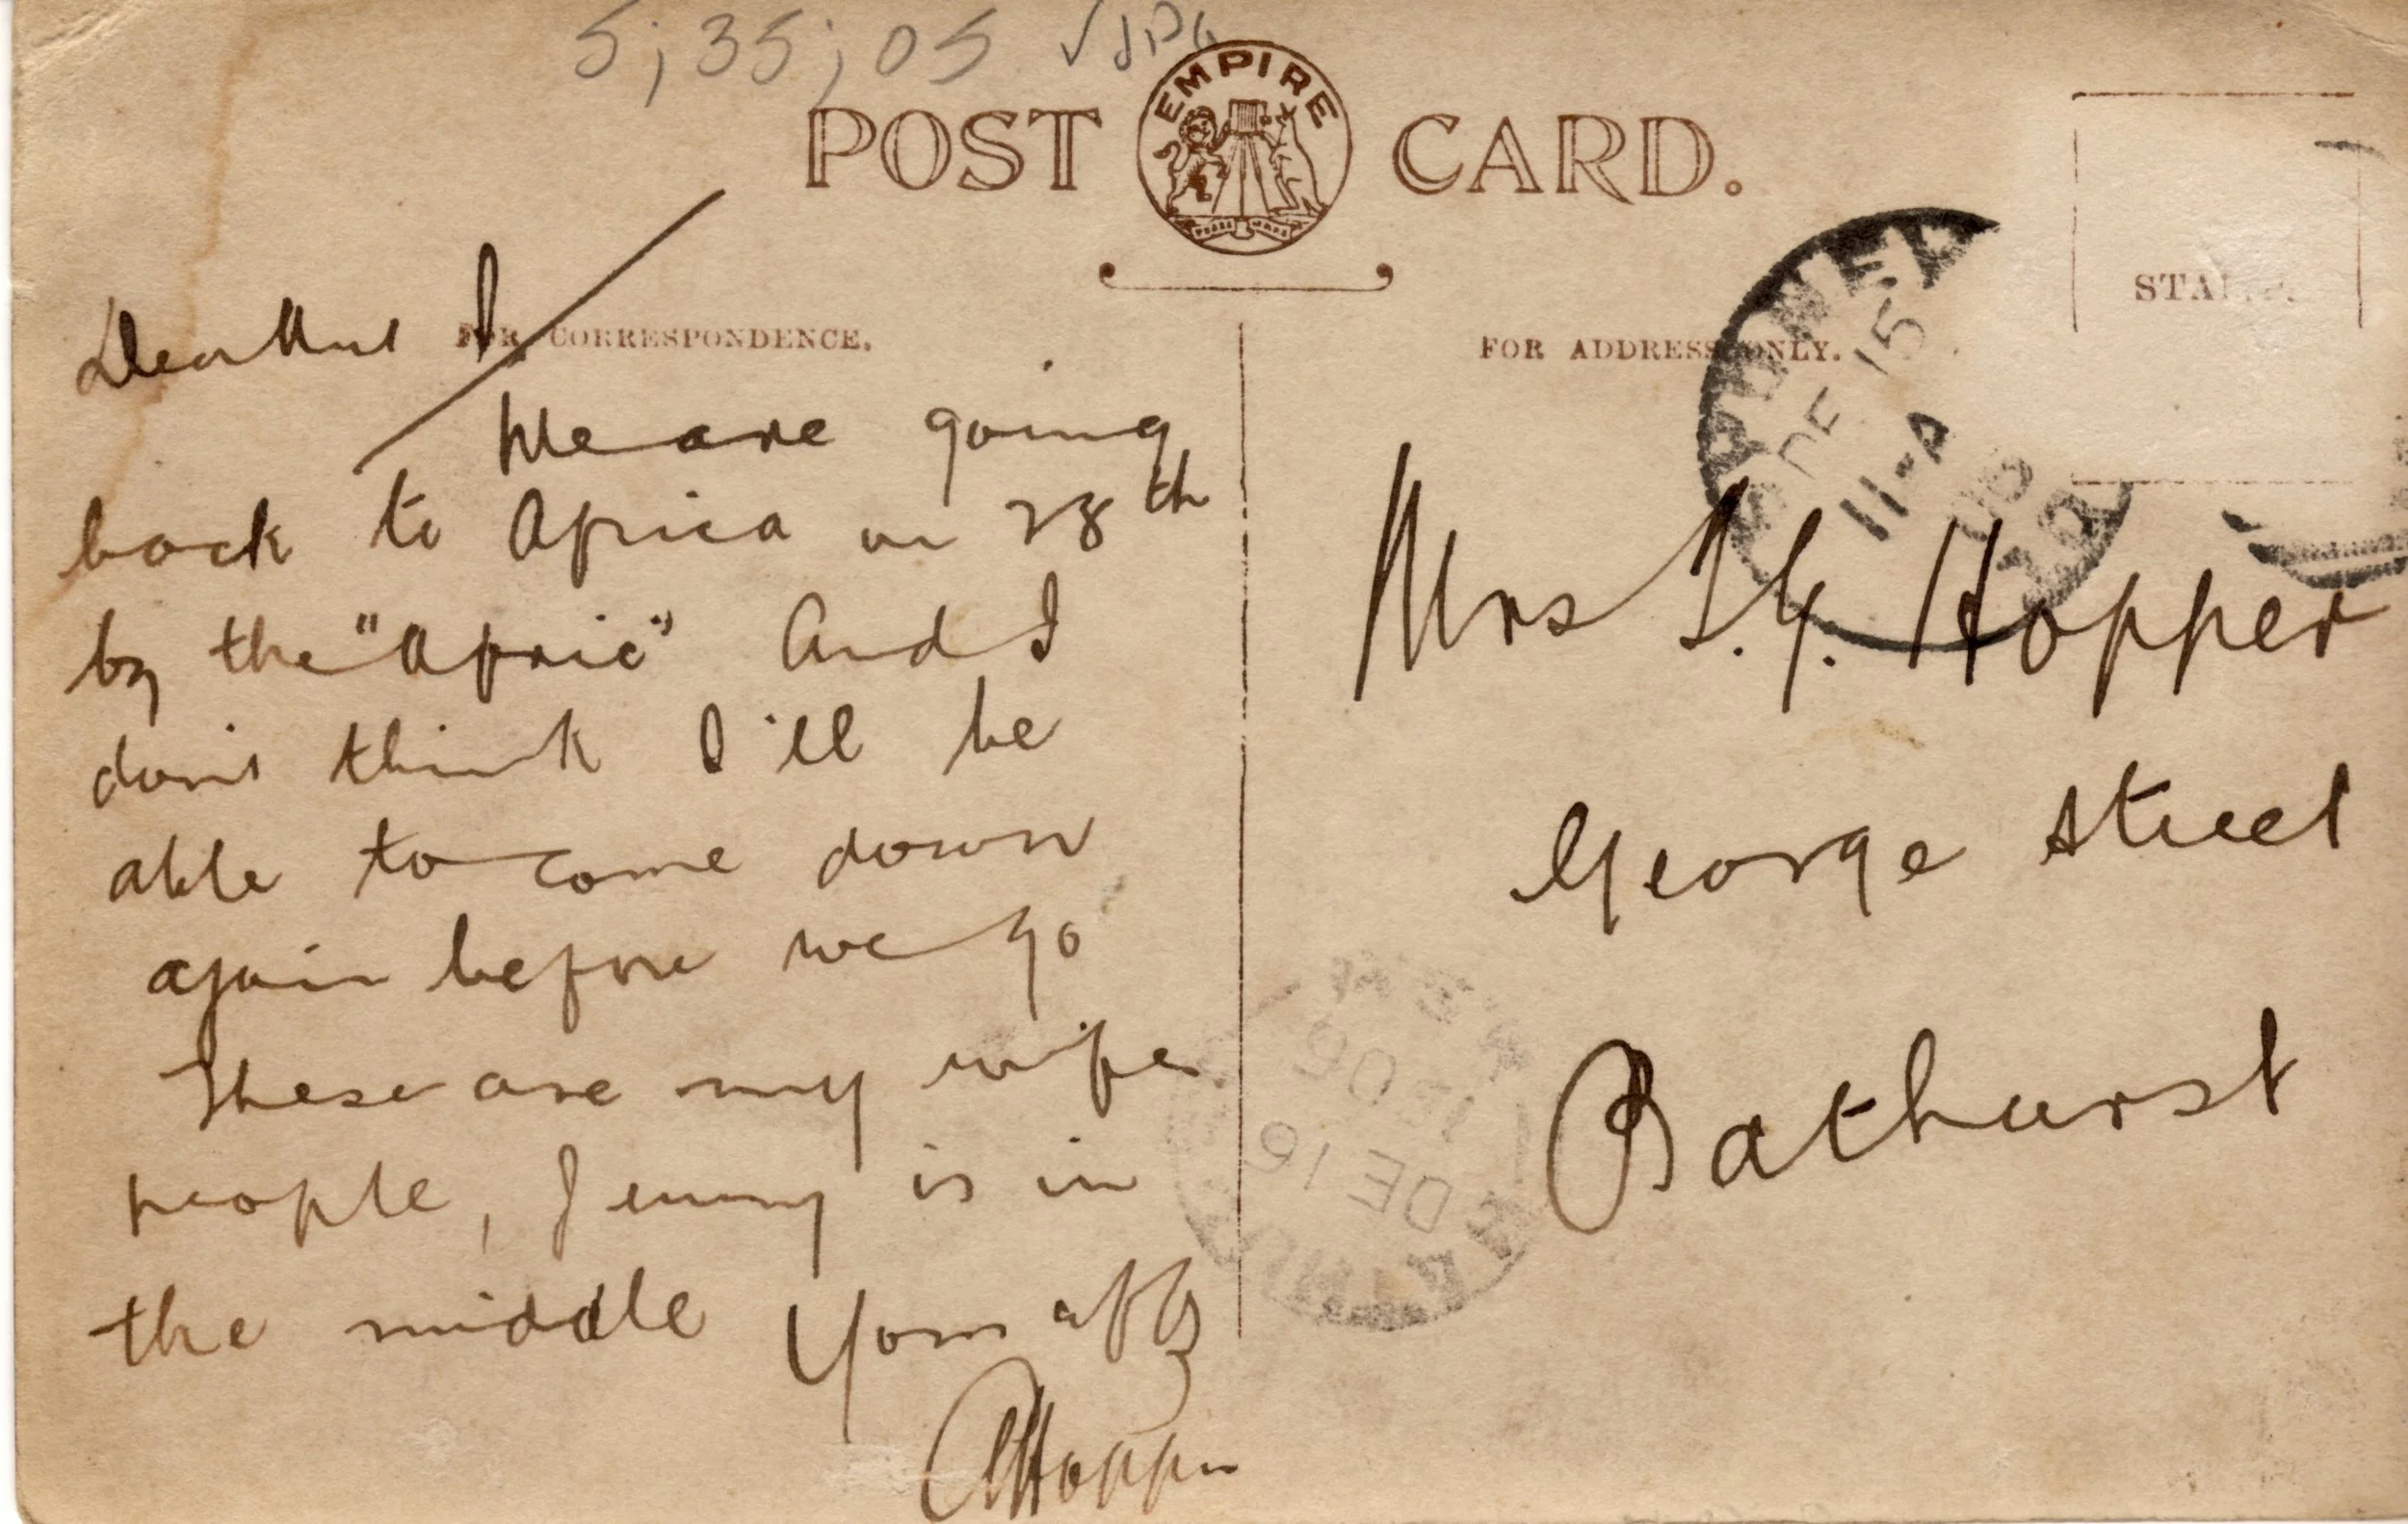 5; 35; 05
POST CARD.
EMPIRE
FOR CORRESPONDENCE.
FOR ADDRESS ONLY.
STAMP
DE 15
11-A
08
Dear Aunt
We are going
back to Africa on 28th
by the "Afric" And I
don't think I'll be
able to come down
again before we go
These are my wife
people, Jenny is in
the middle Your affly
Hopper
Mrs Hopper
George Street
Bathurst
DE 16